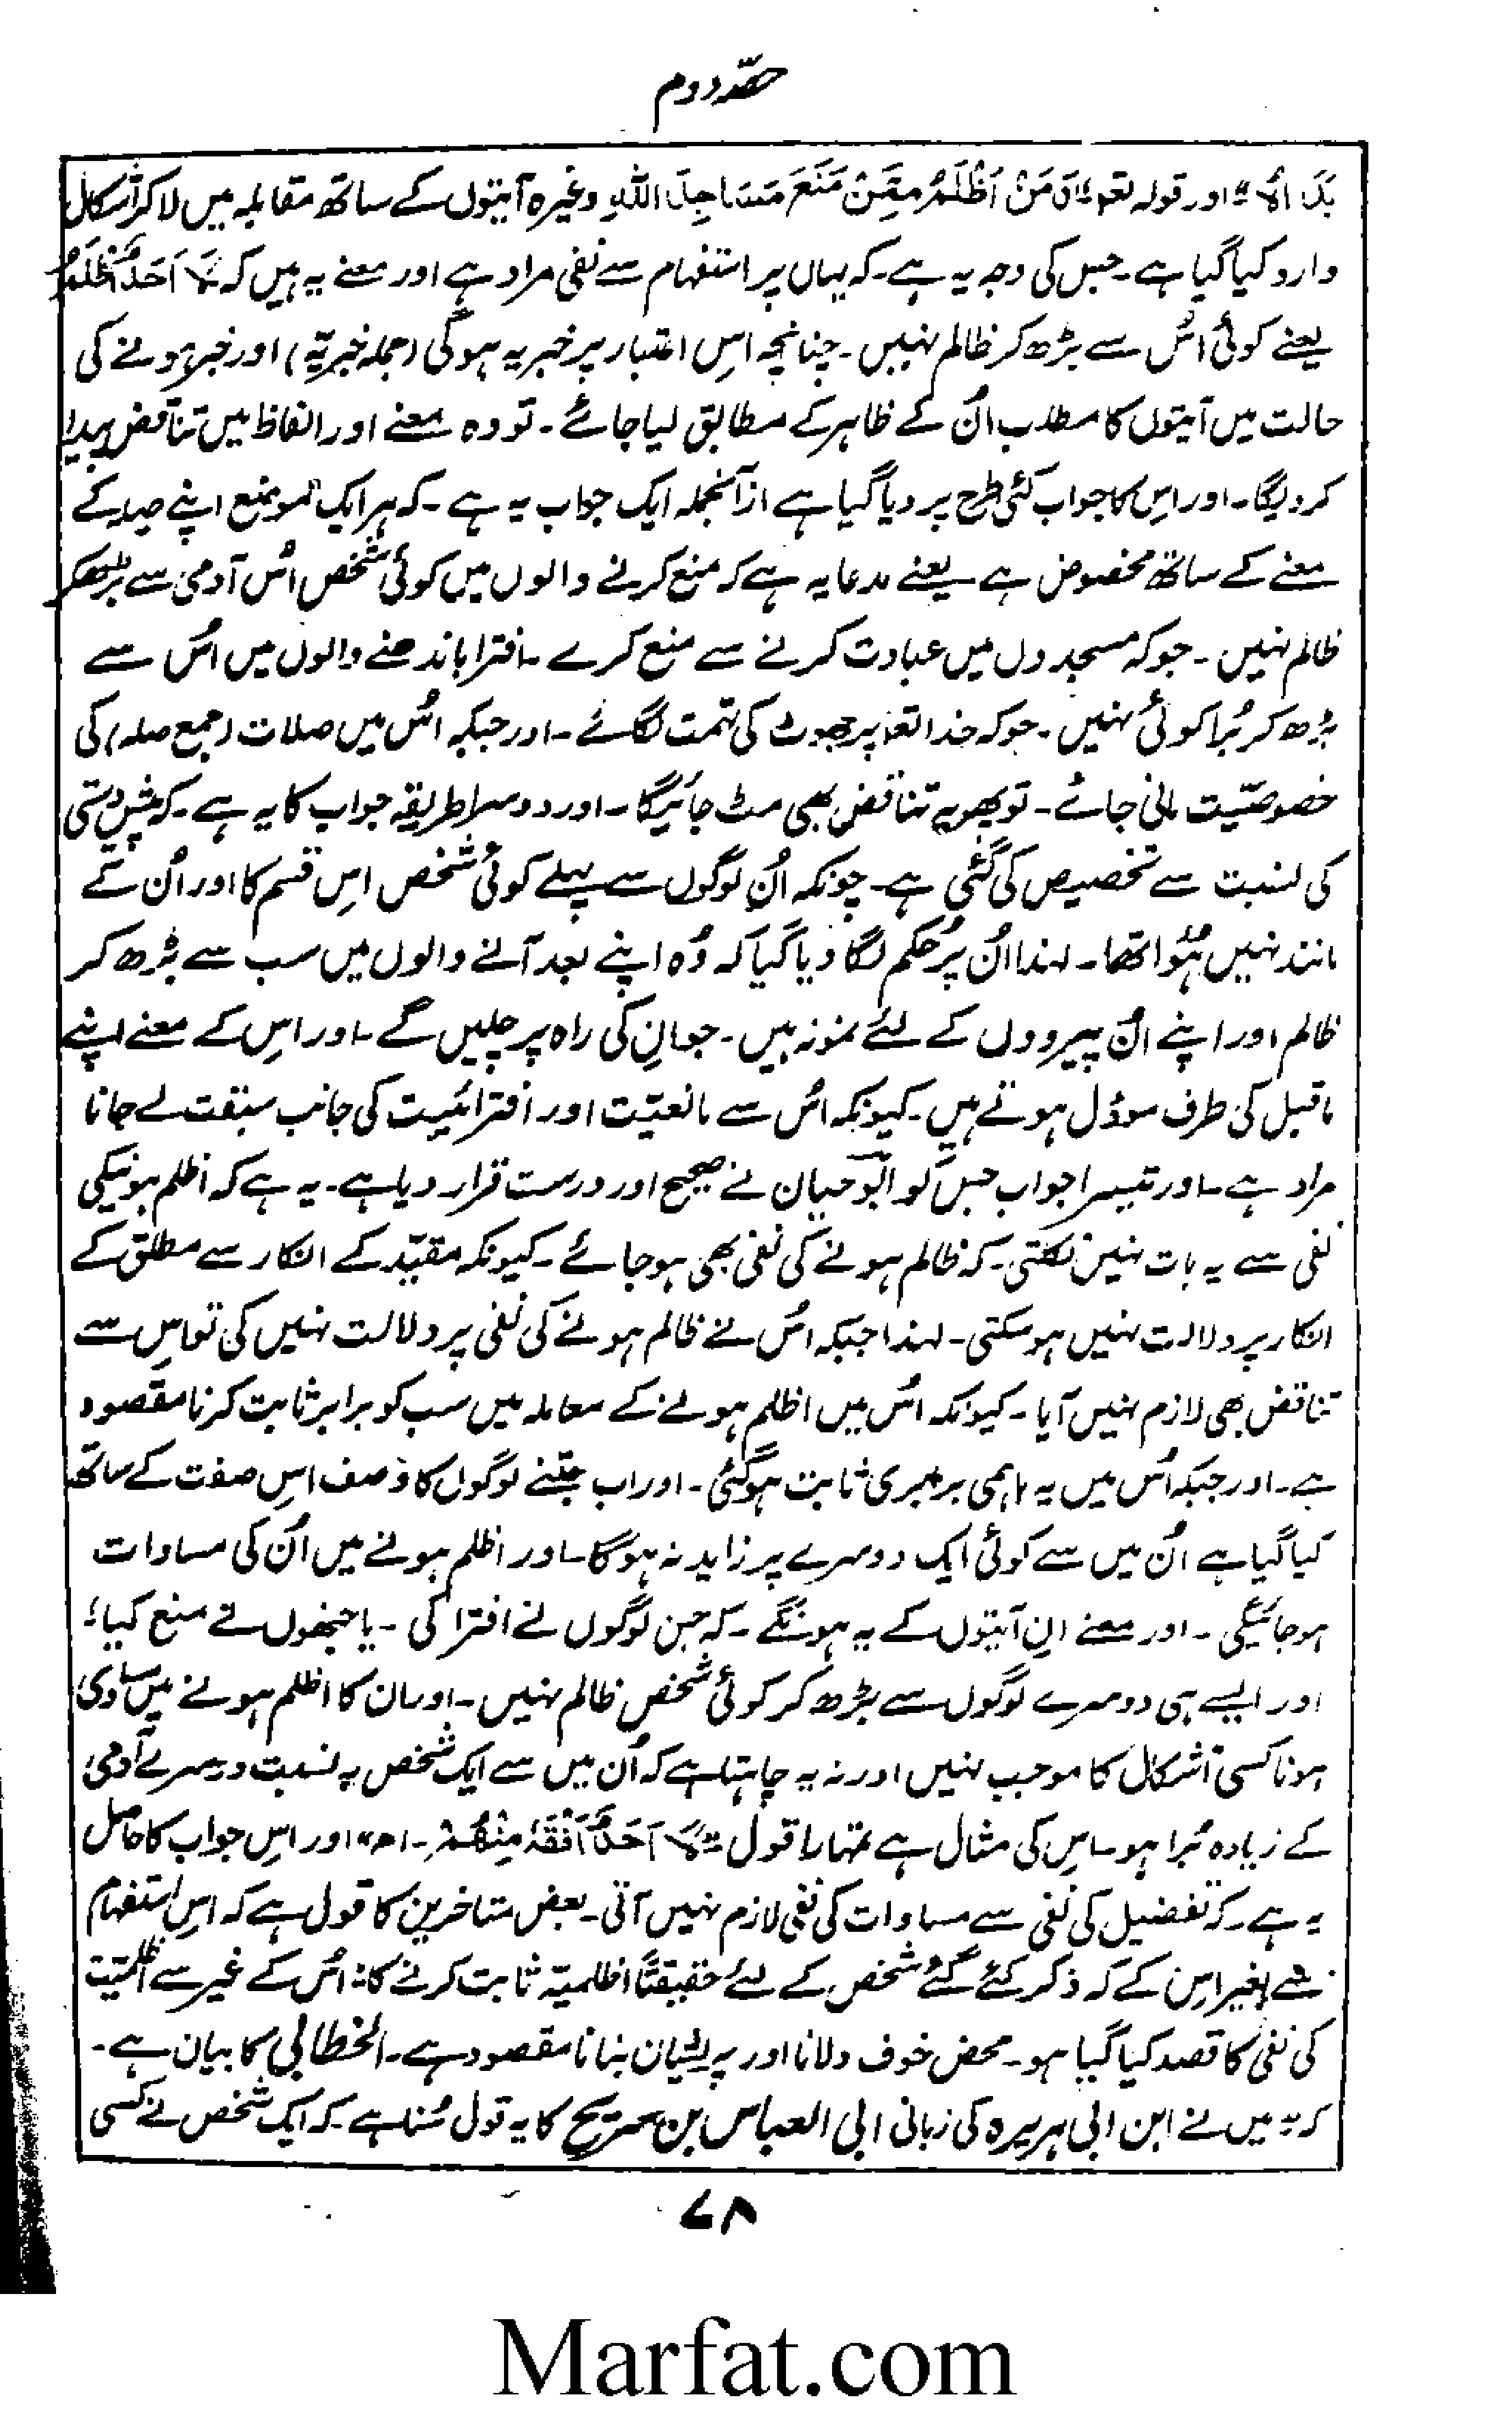 حصّہ دوم
یَدَاہُ" اور قولہ تعہ" وَمَنْ اَظْلَمُ مِمَّنْ مَّنَعَ مَسَاجِدَ اللّٰہِ وغیرہ آیتوں کے ساتھ مقابلہ میں لا کر اشکال
وارد کیا گیا ہے۔ جس کی وجہ یہ ہے۔ کہ یہاں پر استفہام سے نفی مراد ہے اور معنے یہ ہیں کہ لَا اَحَدٌ اَظْلَمُ
یعنے کوئی اُس سے بڑھ کر ظالم نہیں۔ چنانچہ اِس اعتبار پر خبریہ ہوگی (جملہ خبریّہ) اور خبر ہونے کی
حالت میں آیتوں کا مطلب اُن کے ظاہر کے مطابق لیا جائے۔ تو وہ معنے اور الفاظ میں تناقض پیدا
کر دیگا۔ اور اِس کا جواب کئی طرح پر دیا گیا ہے ازآنجملہ ایک جواب یہ ہے۔ کہ ہر ایک موضع اپنے صلہ کے
معنے کے ساتھ مخصوص ہے یعنے مدعا یہ ہے کہ منع کرنے والوں میں کوئی شخص اُس آدمی سے بڑھکر
ظالم نہیں۔ جو کہ مسجدوں میں عبادت کرنے سے منع کرے۔ افترا باندھنے والوں میں اُس سے
بڑھ کر بُرا کوئی نہیں۔ جو کہ خدا تعہ پر جھوٹ کی تہمت لگائے۔ اور جبکہ اُس میں صلات (جمع صلہ) کی
خصوصیّت مانی جائے۔ تو پھر یہ تناقض بھی مٹ جائیگا۔ اور دوسرا طریقہ جواب کا یہ ہے۔ کہ پیش دستی
کی نسبت سے تخصیص کی گئی ہے۔ چونکہ اُن لوگوں سے پہلے کوئی شخص اِس قسم کا اور اُن کے
مانند نہیں ہُوا تھا۔ لہٰذا اُن پر حکم لگا دیا گیا کہ وُہ اپنے بعد آنے والوں میں سب سے بڑھ کر
ظالم اور اپنے اُن پیرووں کے لئے نمونہ ہیں۔ جو اِن کی راہ پر چلیں گے۔ اور اِس کے معنے اپنے
ماقبل کی طرف مؤوّل ہوتے ہیں۔ کیونکہ اُس سے مانعیّت اور افترائیت کی جانب سبقت لے جانا
مراد ہے۔ اور تیسرا جواب جس کو ابوحیان نے صحیح اور درست قرار دیا ہے۔ یہ ہے کہ اظلم ہونیکی
نفی سے یہ بات نہیں نکلتی۔ کہ ظالم ہونے کی نفی بھی ہو جائے۔ کیونکہ مقیّد کے انکار سے مطلق کے
انکار پر دلالت نہیں ہوسکتی۔ لہٰذا جبکہ اُس نے ظالم ہونے کی نفی پر دلالت نہیں کی تو اِس سے
تناقض بھی لازم نہیں آیا۔ کیونکہ اُس میں اظلم ہونے کے معاملہ میں سب کو برابر ثابت کرنا مقصود
ہے۔ اور جبکہ اُس میں یہ باہمی برابری ثابت ہوگئی۔ اور اب جتنے لوگوں کا وَصف اِس صفت کے ساتھ
کیا گیا ہے اُن میں سے کوئی ایک دوسرے پر زاید نہ ہوگا۔ اور اظلم ہونے میں اُن کی مساوات
ہو جائیگی۔ اور معنے اِن آیتوں کے یہ ہونگے۔ کہ جن لوگوں نے افترا کی۔ یا جنھوں نے منع کیا۔
اور ایسے ہی دوسرے لوگوں سے بڑھ کر کوئی شخص ظالم نہیں۔ اور ان کا اظلم ہونے میں مساوی
ہونا کسی اشکال کا موجب نہیں اور نہ یہ چاہتا ہے کہ اُن میں سے ایک شخص بہ نسبت دوسرے آدمی
کے زیادہ بُرا ہو۔ اِس کی مثال ہے تمہارا قول "لَا اَحَدٌ اَفْقَہُ مِنْھُمْ۔ ا۔ھ" اور اِس جواب کا حاصل
یہ ہے۔ کہ تفضیل کی نفی سے مساوات کی نفی لازم نہیں آتی۔ بعض متاخرین کا قول ہے کہ اِس استفہام
سے بغیر اِس کے کہ ذکر کئے گئے شخص کے لئے حقیقتًا اظلمیّۃ ثابت کرنے کا یا اُس کے غیر سے اظلمیّت
کی نفی کا قصد کیا گیا ہو۔ محض خوف دلانا اور پریشان بنانا مقصود ہے۔ الخطابی کا بیان ہے۔
کہ" میں نے ابن ابی ہریرہ کی زبانی ابی العباس بن سریج کا یہ قول سُنا ہے۔ کہ ایک شخص نے کسی
۷۸
Marfat.com